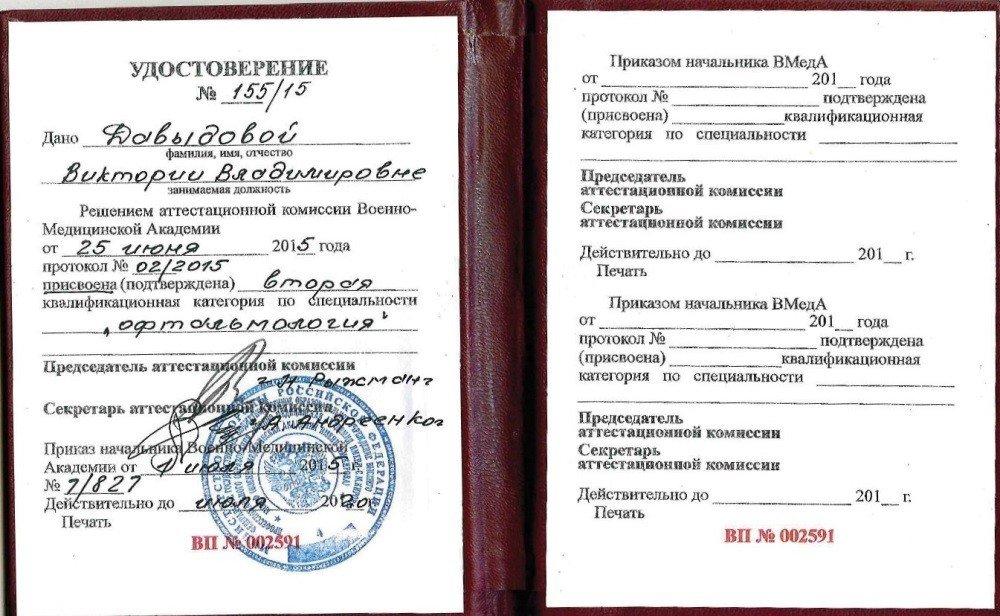 УДОСТОВЕРЕНИЕ
№ 155/15
Дано Давыдовой
фамилия, имя, отчество
Виктории Владимировне
занимаемая должность
Решением аттестационной комиссии Военно-
Медицинской Академии
от 25 июня 2015 года
протокол № 02/2015
присвоена (подтверждена) вторая
квалификационная категория по специальности
"офтальмология"
Председатель аттестационной комиссии
Секретарь аттестационной комиссии
Приказ начальника Военно-Медицинской
Академии от 1 июля 2015 г.
№ 1/827
Действительно до июля 2020
Печать
ВП № 002591
Приказом начальника ВМедА
от ____ 201__ года
протокол № ____ подтверждена
(присвоена) ____ квалификационная
категория по специальности ____
Председатель
аттестационной комиссии
Секретарь
аттестационной комиссии
Действительно до ____ 201__ г.
Печать
Приказом начальника ВМедА
от ____ 201__ года
протокол № ____ подтверждена
(присвоена) ____ квалификационная
категория по специальности ____
Председатель
аттестационной комиссии
Секретарь
аттестационной комиссии
Действительно до ____ 201__ г.
Печать
ВП № 002591